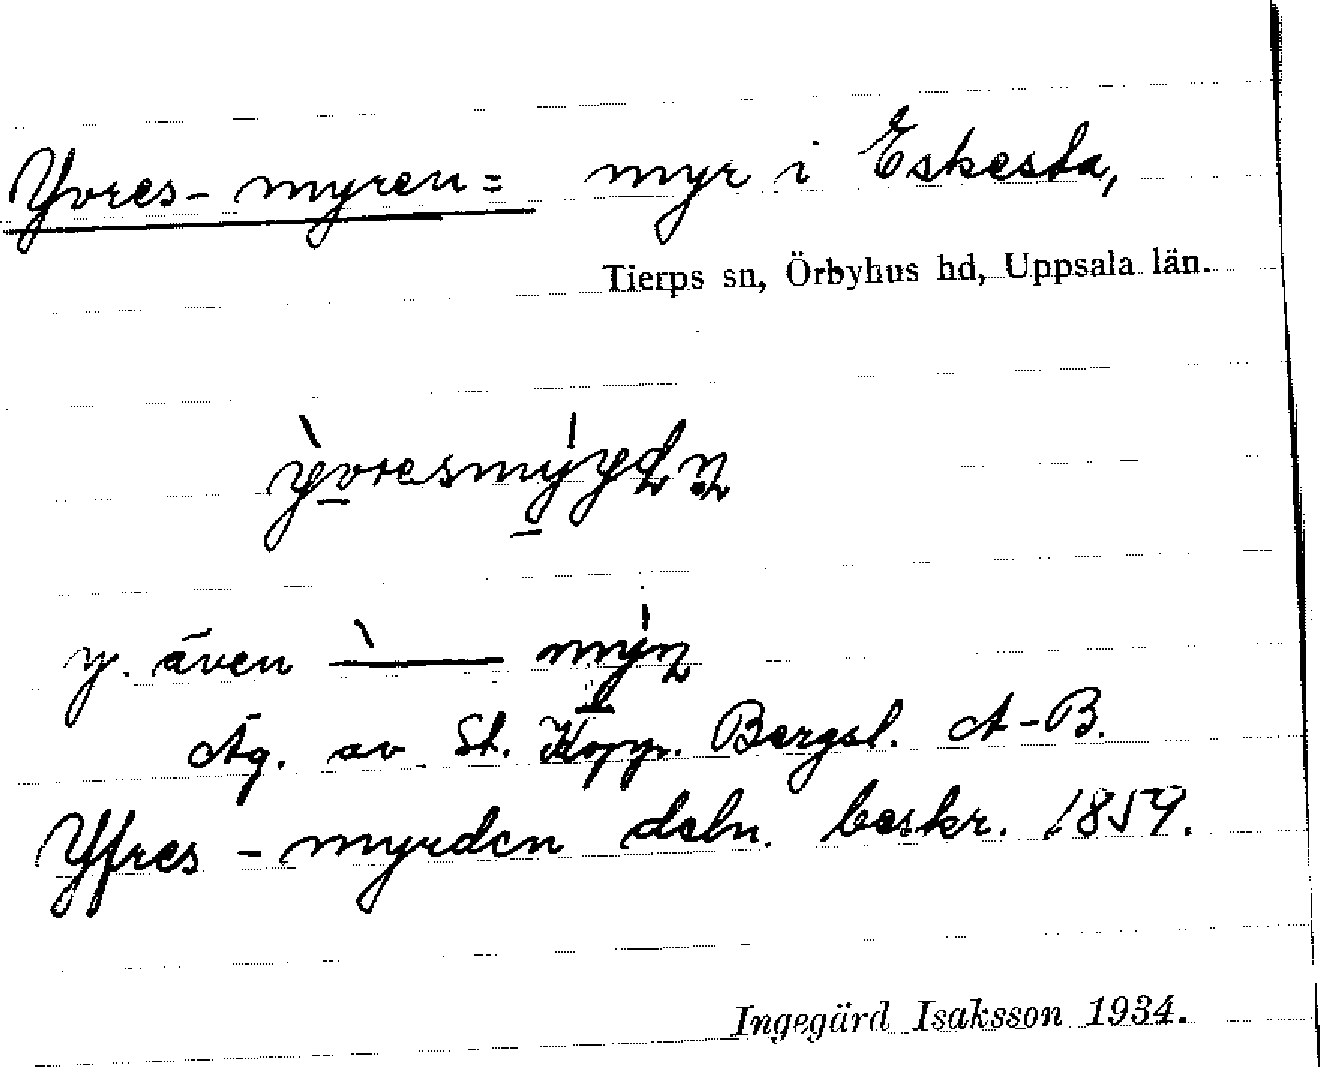 Yvres-myren = myr i Eskesta,
Tierps sn, Örbyhus hd, Uppsala län.
y. även ̀—— mýn
Äg. av St. Kopp. Bergsl. A-B.
Yfres-myrden deln. beskr. 1859.
Ingegärd Isaksson 1934.